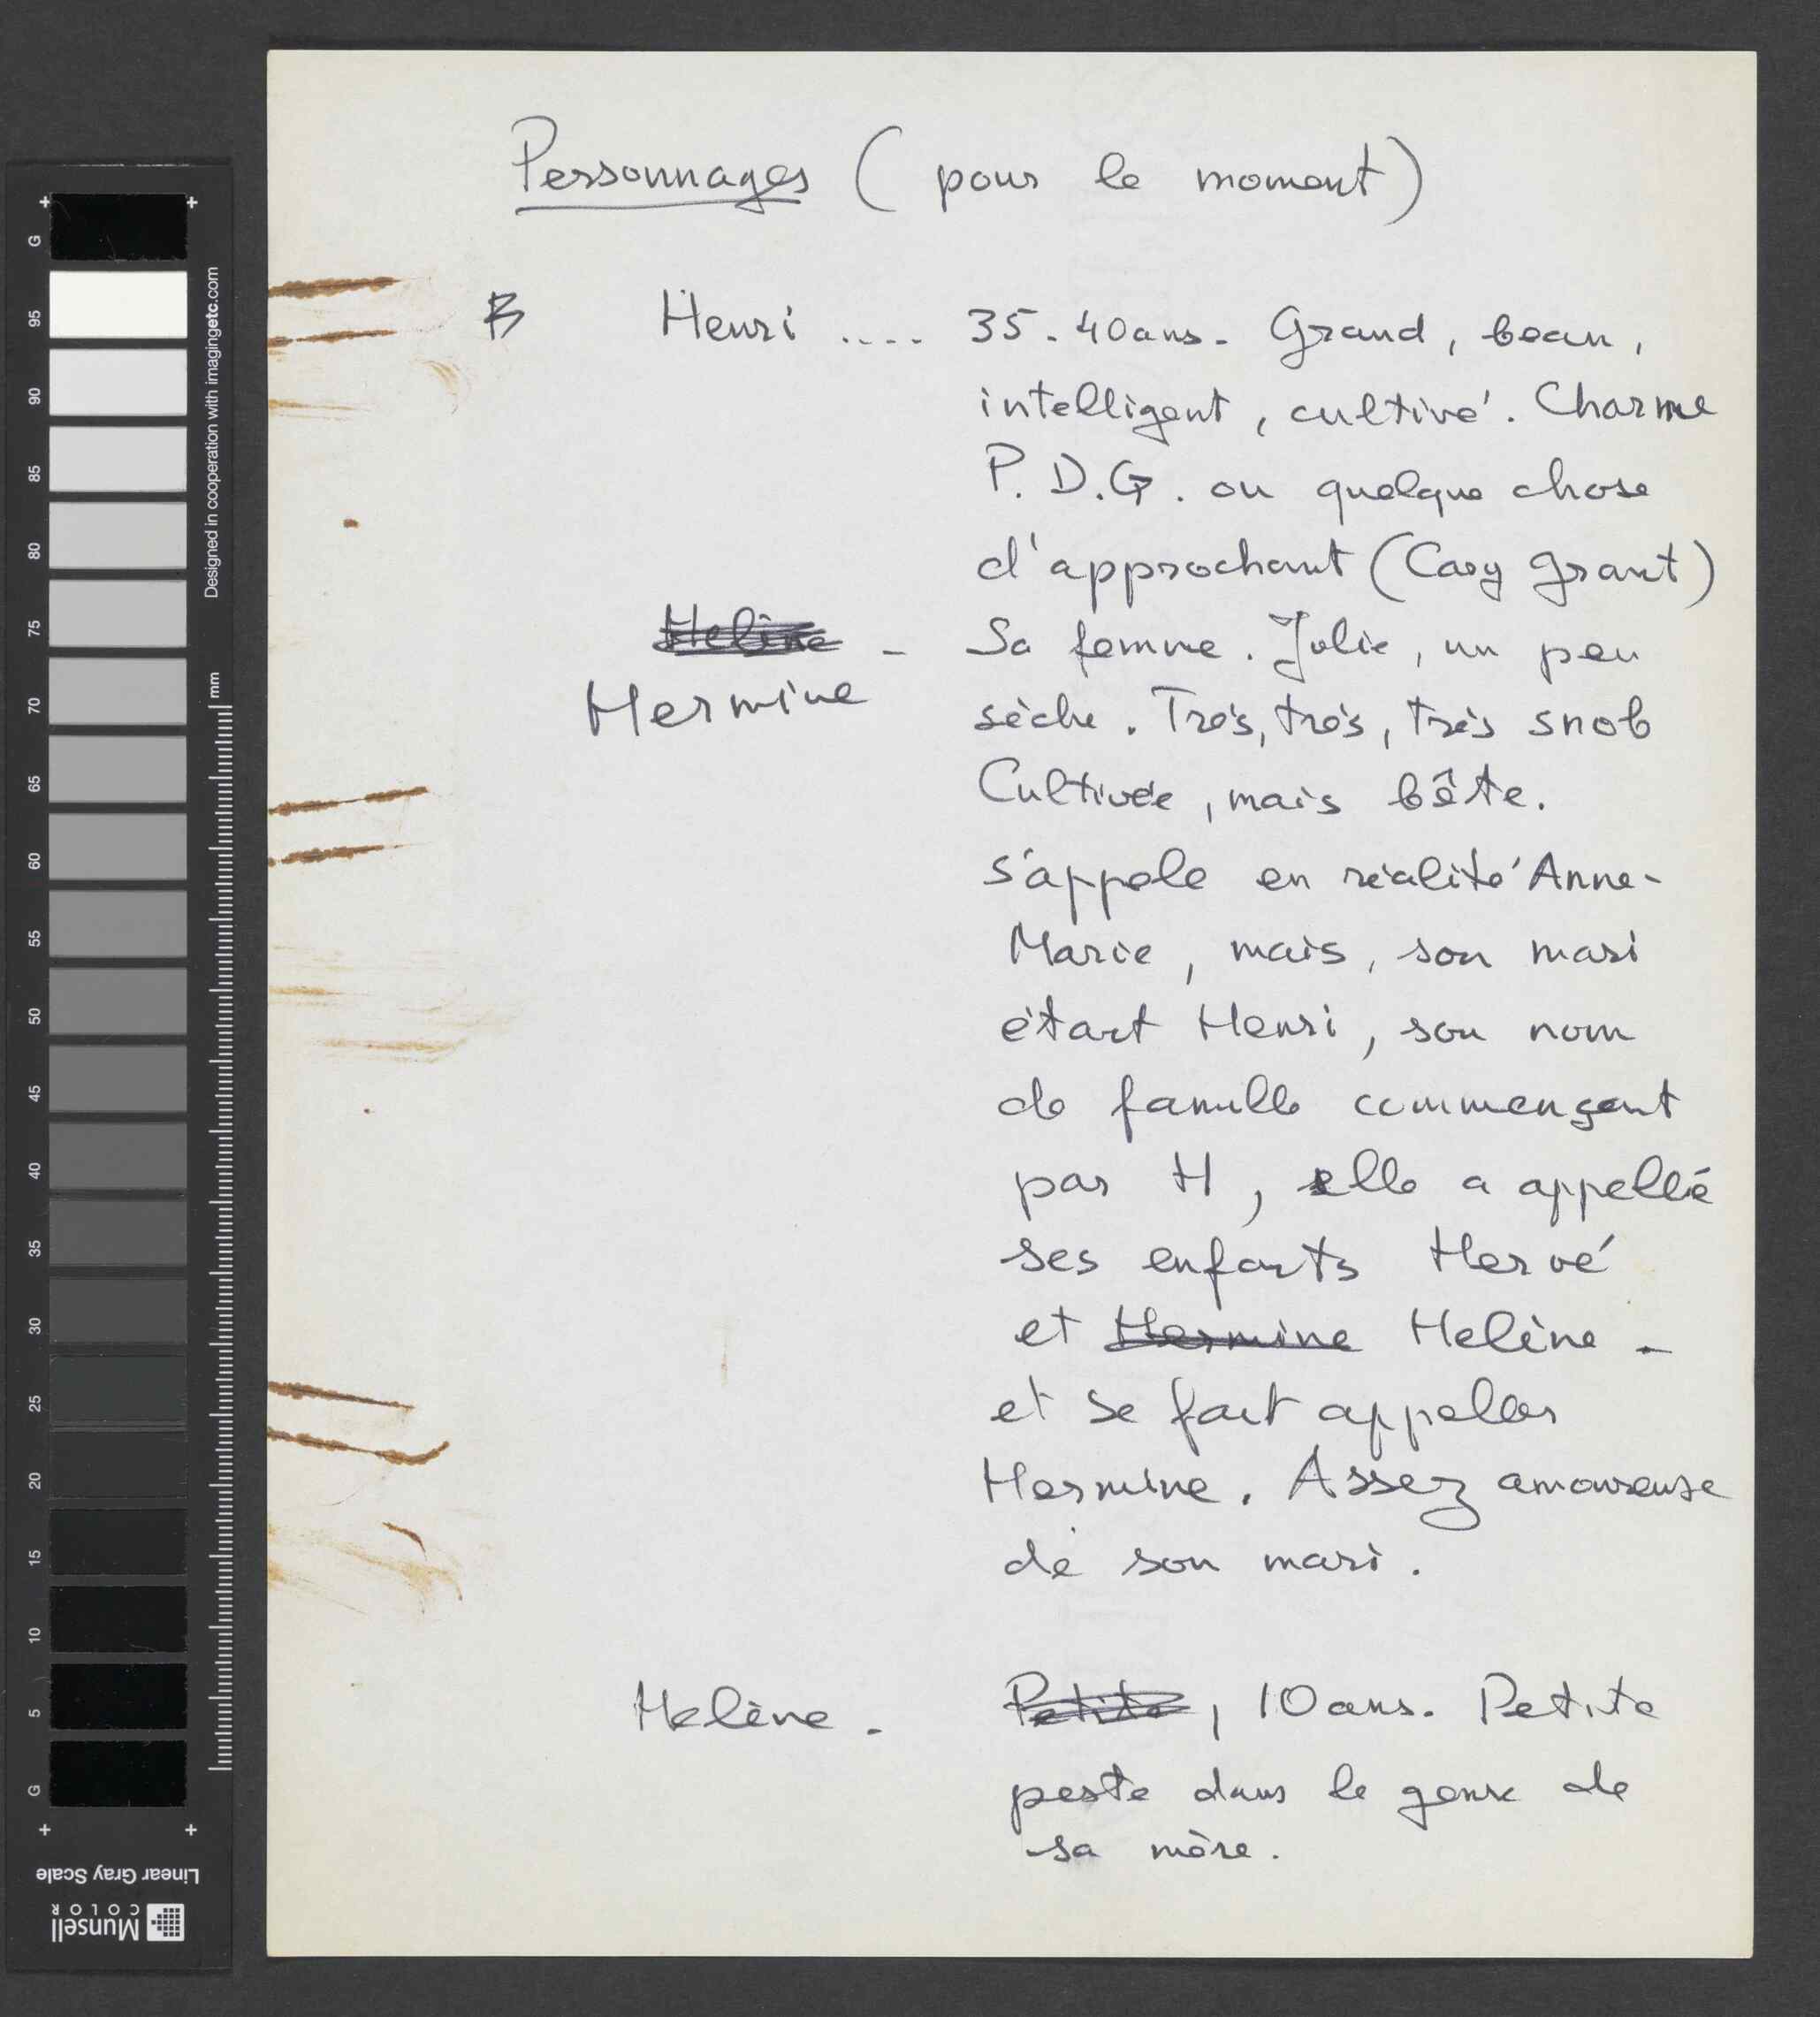 Personnages (pour le moment)
B Henri .... 35-40ans. Grand, beau,
intelligent, cultivé. Charme
P.D.G. ou quelque chose
d'approchant (Cary Grant)
Helène - Sa femme. Jolie, un peu
Hermine sèche. Très, très, très snob
Cultivée, mais bête.
s'appele en réalité Anne-
Marie, mais, son mari
étant Henri, son nom
de famille commençant
par H, elle a appellé
ses enfants Hervé
et Hermine Helène -
et se fait appeller
Hermine. Assez amoureuse
de son mari.
Helène - Petite, 10ans. Petite
peste dans le genre de
sa mère.
G
95
90
85
80
75
70
65
60
55
50
45
40
35
30
25
20
15
10
5
G
Designed in cooperation with imagingetc.com
mm
Linear Gray Scale
Munsell
COLOR